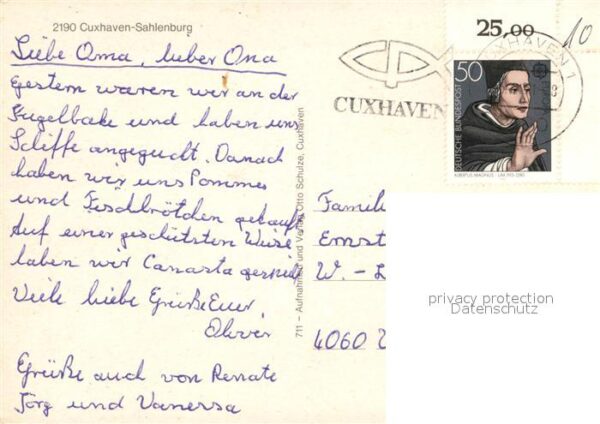 2190 Cuxhaven-Sahlenburg
Liebe Oma, lieber Opa
Gestern waren wir an der
Kugelbake und haben uns
Schiffe angeguckt. Danach
haben wir uns Pommes
und Fischbrötchen gekauft
Auf einer geschützten Wiese
haben wir Canasta gespielt
Viele liebe Grüße Euer
Oliver
Grüße auch von Renate
Jörg und Vanessa
711 – Aufnahmen und Verlag Otto Schulze, Cuxhaven
25,00
10
CUXHAVEN 1
CUXHAVEN
50
DEUTSCHE BUNDESPOST
ALBERTUS MAGNUS
Famili
Ernst
W. -
4060
privacy protection
Datenschutz